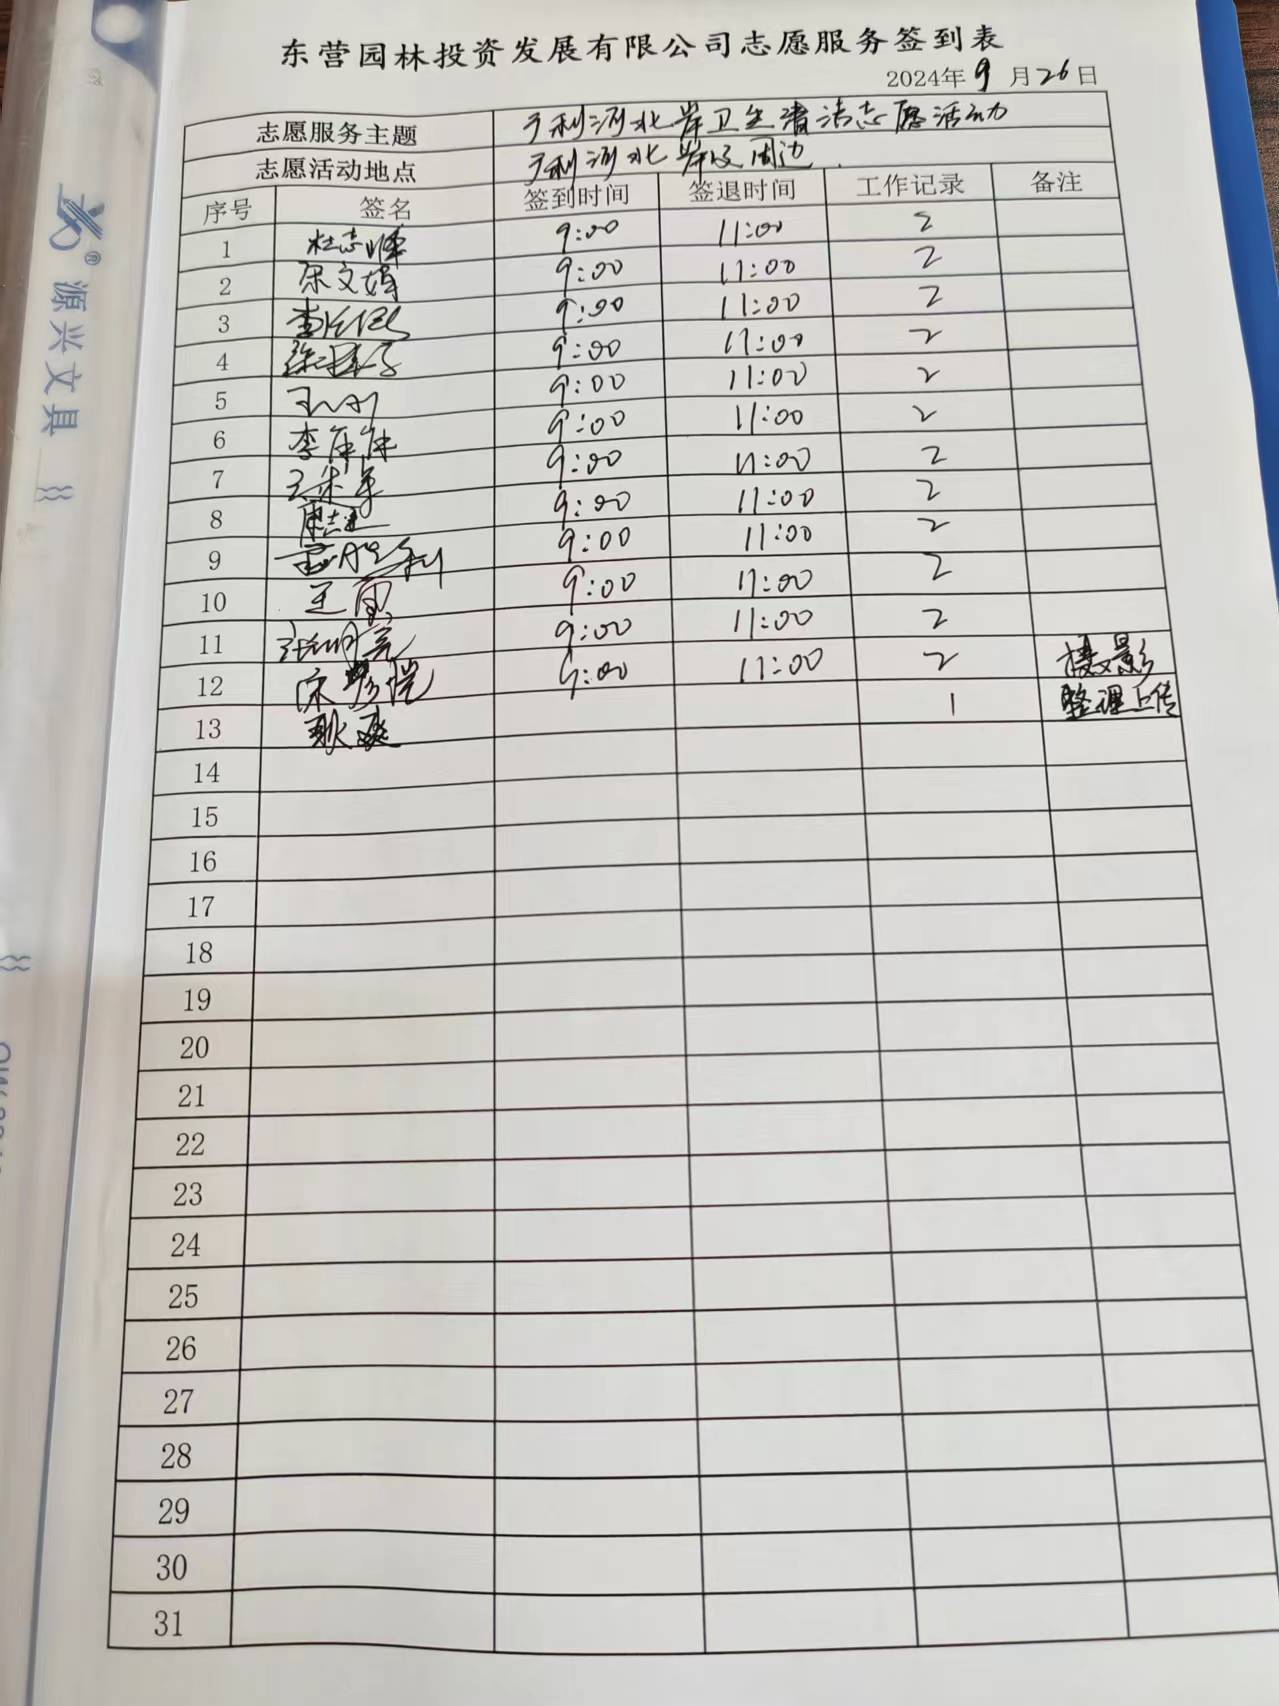 东营园林投资发展有限公司志愿服务签到表
2024年9月26日
志愿服务主题 广利河北岸卫生清洁志愿活动
志愿活动地点 广利河北岸及周边
序号 签名 签到时间 签退时间 工作记录 备注
1 9:00 11:00 2
2 文娟 9:00 11:00 2
3 李 9:00 11:00 2
4 徐 9:00 11:00 2
5 9:00 11:00 2
6 李 9:00 11:00 2
7 9:00 11:00 2
8 9:00 11:00 2
9 利 9:00 11:00 2
10 王雪 9:00 11:00 2
11 张明亮 9:00 11:00 2
12 宋 9:00 11:00 2 摄影
13 耿爽 1 整理上传
14
15
16
17
18
19
20
21
22
23
24
25
26
27
28
29
30
31
源兴文具